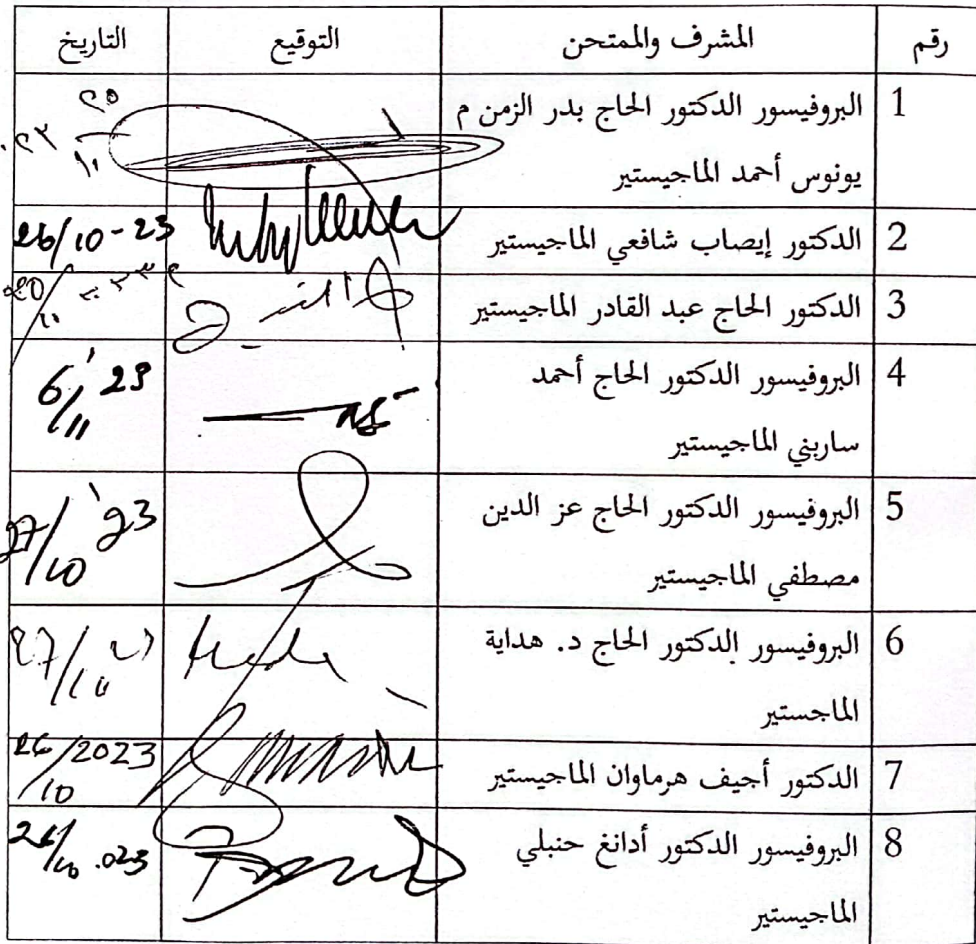 رقم المشرف والممتحن التوقيع التاريخ
1 البروفيسور الدكتور الحاج بدر الزمن م
يونوس أحمد الماجيستير
2 الدكتور إيصاب شافعي الماجيستير 26/10-23
3 الدكتور الحاج عبد القادر الماجيستير
4 البروفيسور الدكتور الحاج أحمد 6/11 '23
ساربني الماجيستير
5 البروفيسور الدكتور الحاج عز الدين 27/10 '23
مصطفي الماجيستير
6 البروفيسور الدكتور الحاج د. هداية 27/10
الماجستير
7 الدكتور أجيف هرماوان الماجيستير 26/10 2023
8 البروفيسور الدكتور أدانغ حنبلي 26/10 .023
الماجيستير